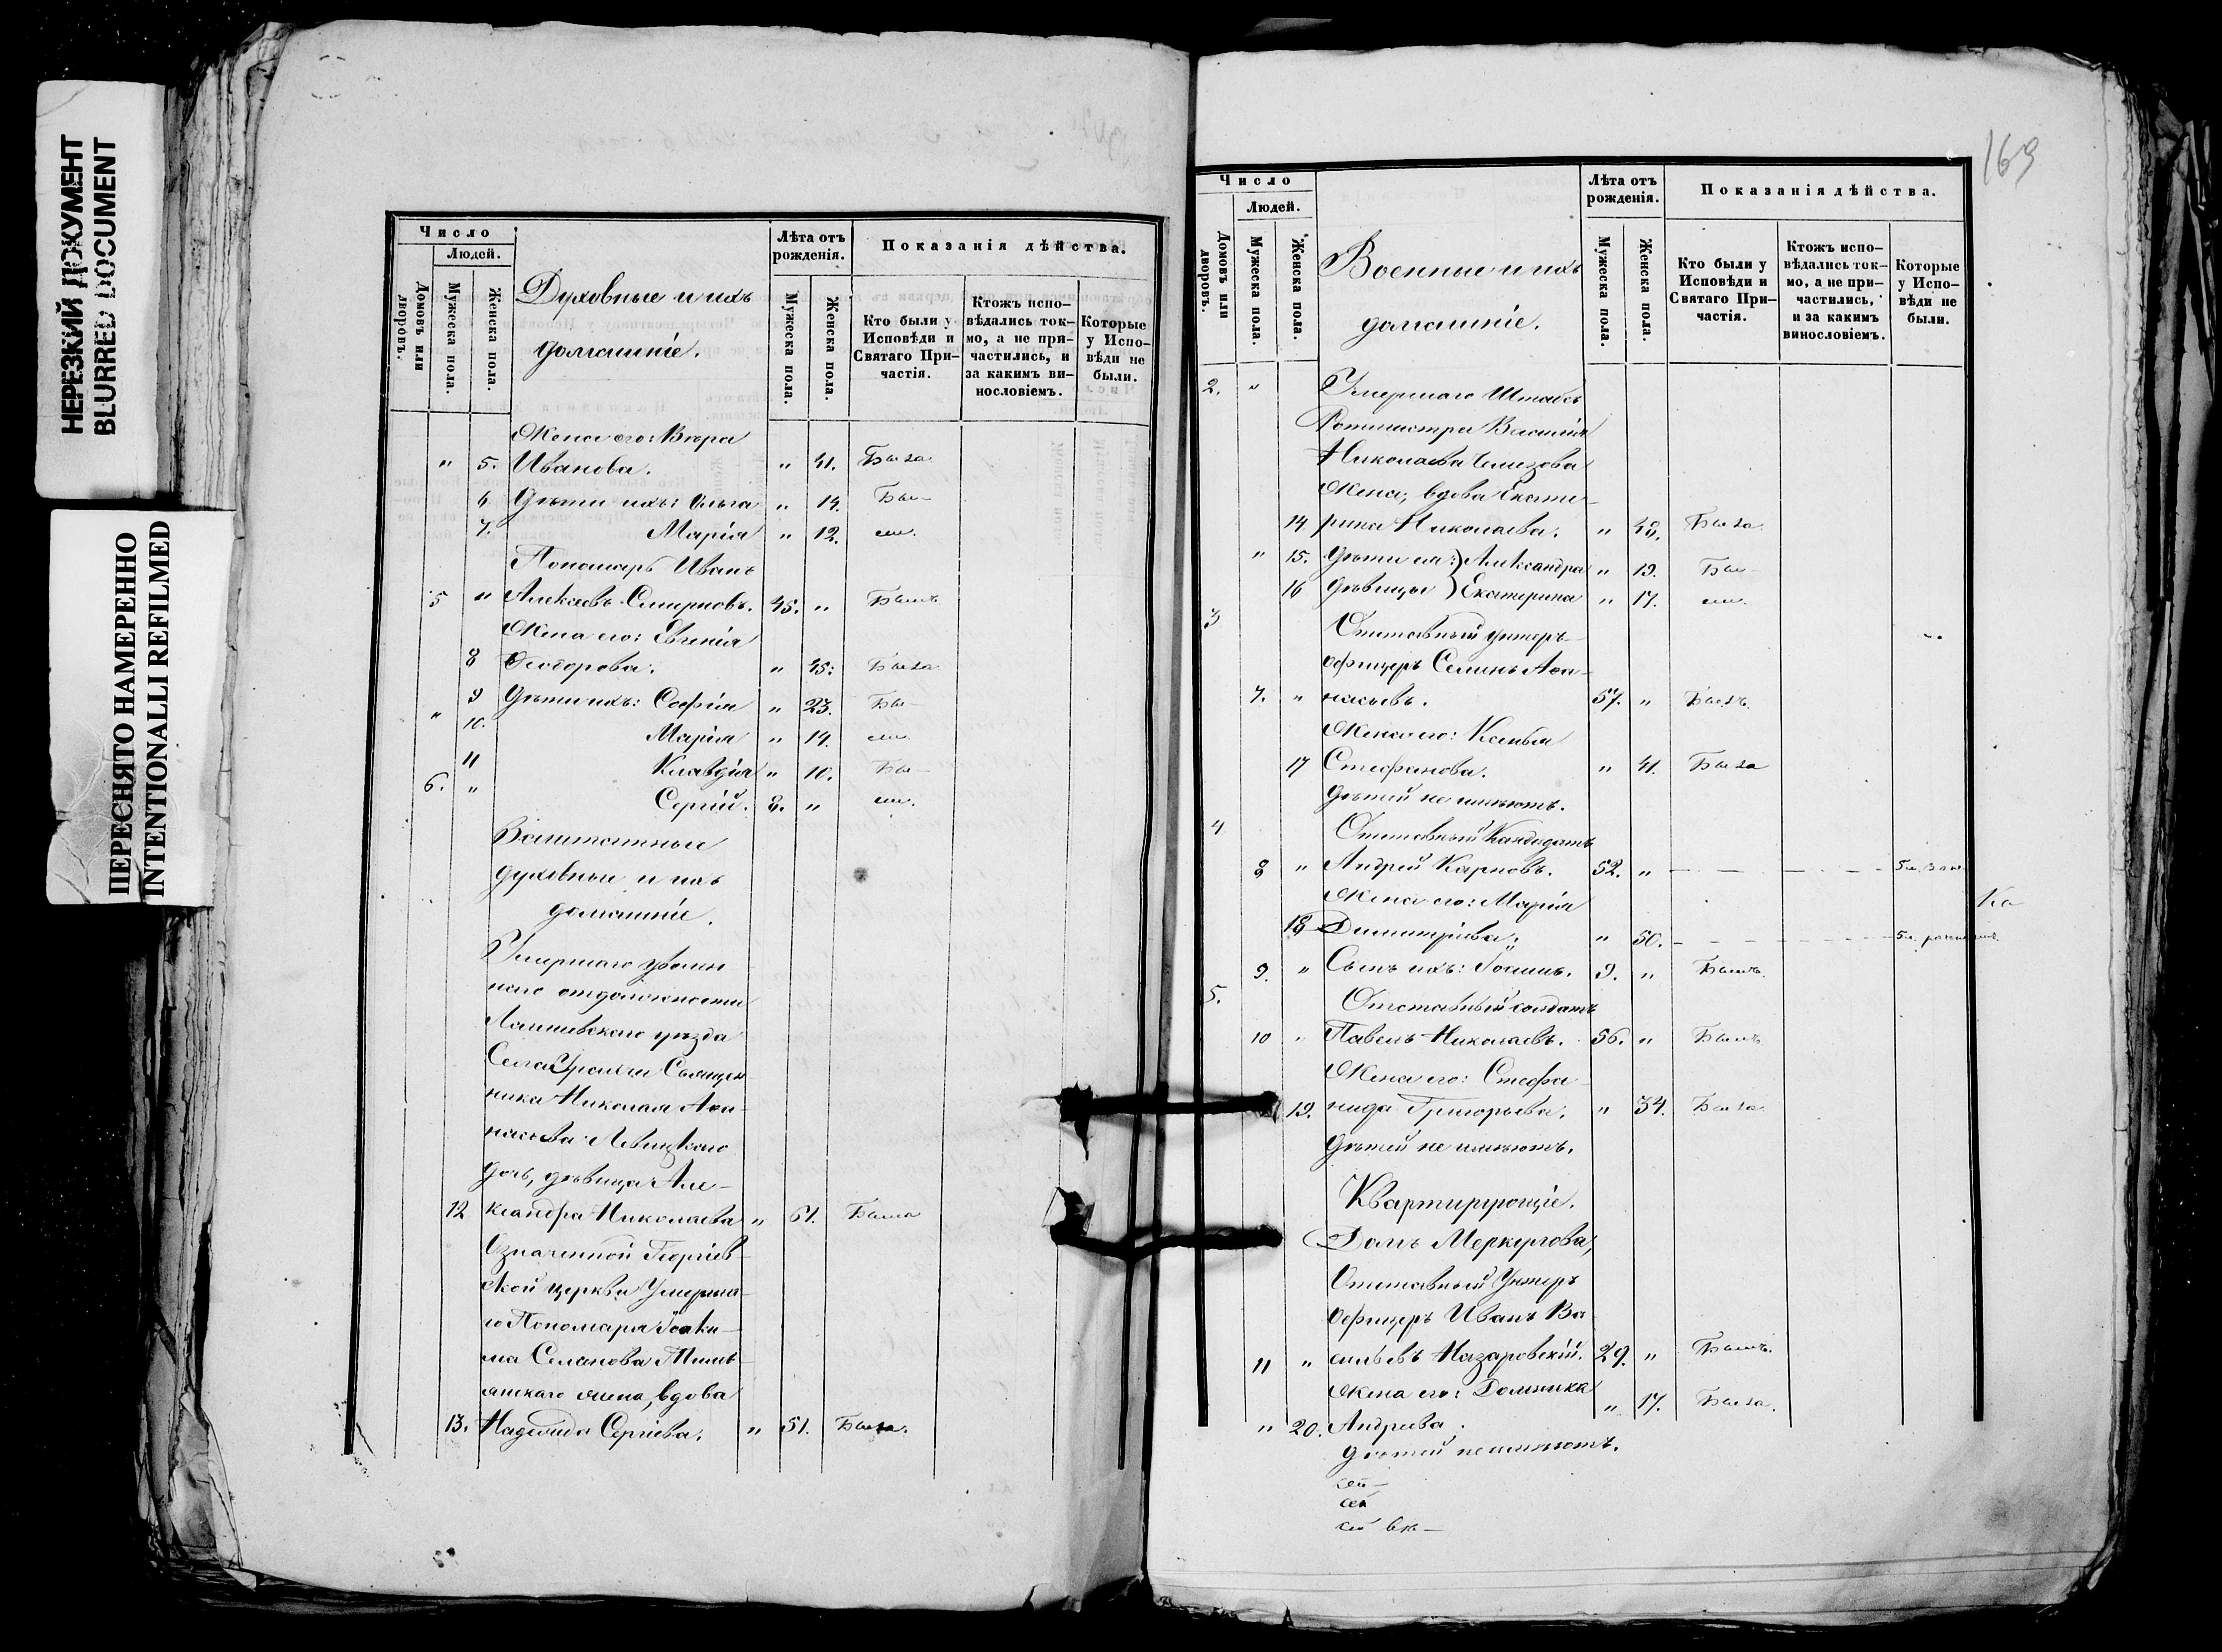 НЕРЕЗКИЙ ДОКУМЕНТ
BLURRED DOCUMENT
ПЕРЕСНЯТО НАМЕРЕННО
INTENTIONALLI REFILMED
Число
Людей.
Домовъ или дворовъ.
Мужеска пола.
Женска пола.
Духовные и ихъ
домашніе.
Лѣта отъ рожденія.
Мужеска пола.
Женска пола.
Показанія дѣйства.
Кто были у Исповѣди и Святаго При-частія.
Ктожъ испо-вѣдались ток-мо, а не при-частились, и за какимъ ви-нословіемъ.
Которые у Испо-вѣди не были.
Жена его: Вѣра
" 5. Иванова. " 41. Была
6 Дѣти ихъ: Ольга " 14. Бы-
7. Марія " 12. ли.
Пономарь Иванъ
5 " Алексѣевъ Смирновъ. 45. " Былъ
Жена его: Евгенія
8 Ѳеодорова. " 45: Была
9 Дѣти ихъ: Софія " 23. Бы-
" 10. Марія " 14. ли.
11 Клавдія " 10. Бы-
6. " Сергій. 8. " ли.
Заштатные
духовные и ихъ
домашніе.
Умершаго уволен
наго отдолжности
Лаишевскаго уѣзда
Села Священ
ника Николая Аѳа-
насьева Левицкаго
дочь, дѣвица Але-
12 ксандра Николаева " 61. Была
Означенной Георгіев-
ской церкви Умерша-
го Пономаря Іоаки-
ма Семенова
жена, вдова
13. Надежда Сергіева. " 51. Была.
169
Число
Людей.
Домовъ или дворовъ.
Мужеска пола.
Женска пола.
Военные и ихъ
домашніе.
Лѣта отъ рожденія.
Мужеска пола.
Женска пола.
Показанія дѣйства.
Кто были у Исповѣди и Святаго При-частія.
Ктожъ испо-вѣдались ток-мо, а не при-частились, и за какимъ винословіемъ.
Которые у Испо-вѣди не были.
2. " Умершаго Штабсъ
Ротмистра Василія
Николаева
Жена, вдова Екате-
14 рина Николаева. " 48. Была
" 15. Дѣти ея: Александра " 19. Бы-
16 дѣвицы Екатерина " 17. ли.
3 Отставный унтеръ-
офицеръ Семенъ Аѳа-
7. " насьевъ. 57. " Былъ.
Жена его: Ксенья
17 Стефанова. " 41. Была
дѣтей не имѣютъ.
4 Отставный Кандидатъ
8 " Андрей Карповъ. 52. " - - - - -
Жена его: Марія
Ка
18 Димитріева. " 50. - - - - -
9. " Сынъ ихъ: Іоаннъ. 9. " Былъ.
5. Отставный солдатъ
10 " Павелъ Николаевъ. 56. " Былъ
Жена его: Стефа-
19. нида Григорьева. " 34. Была.
Дѣтей не имѣютъ.
Квартирующіе.
Домъ Меркулова,
Отставный Унтеръ
офицеръ Иванъ Ва
11 " сильевъ Назаровскій. 29. " Былъ.
Жена его: Домника
" 20. Андреева. " 17. Была.
дѣтей не имѣютъ.